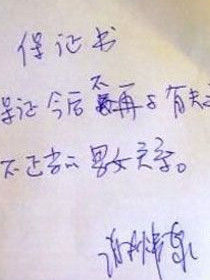 保证书
保证今后不再与有夫之
不正当的男女关系。